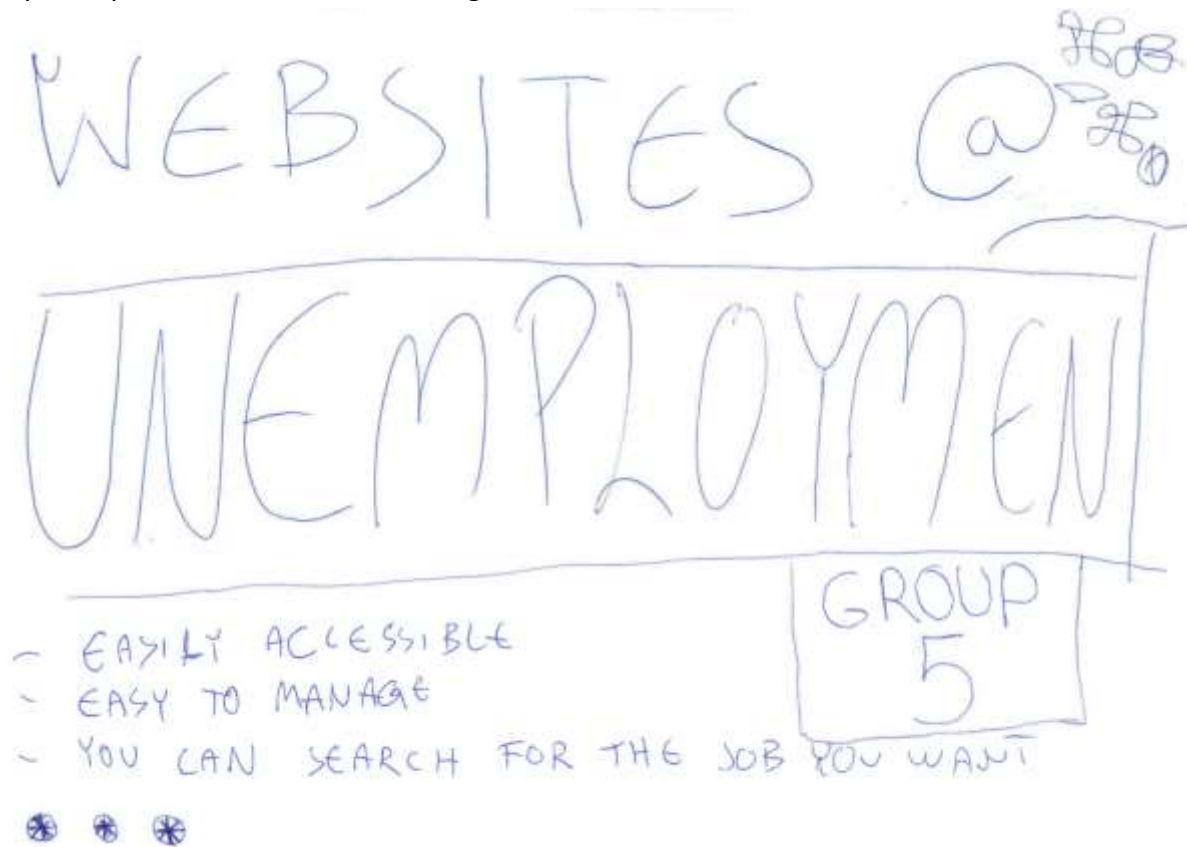 WEBSITES @
UNEMPLOYMEN
GROUP
5
- EASILY ACCESSIBLE
- EASY TO MANAGE
- YOU CAN SEARCH FOR THE JOB YOU WANT